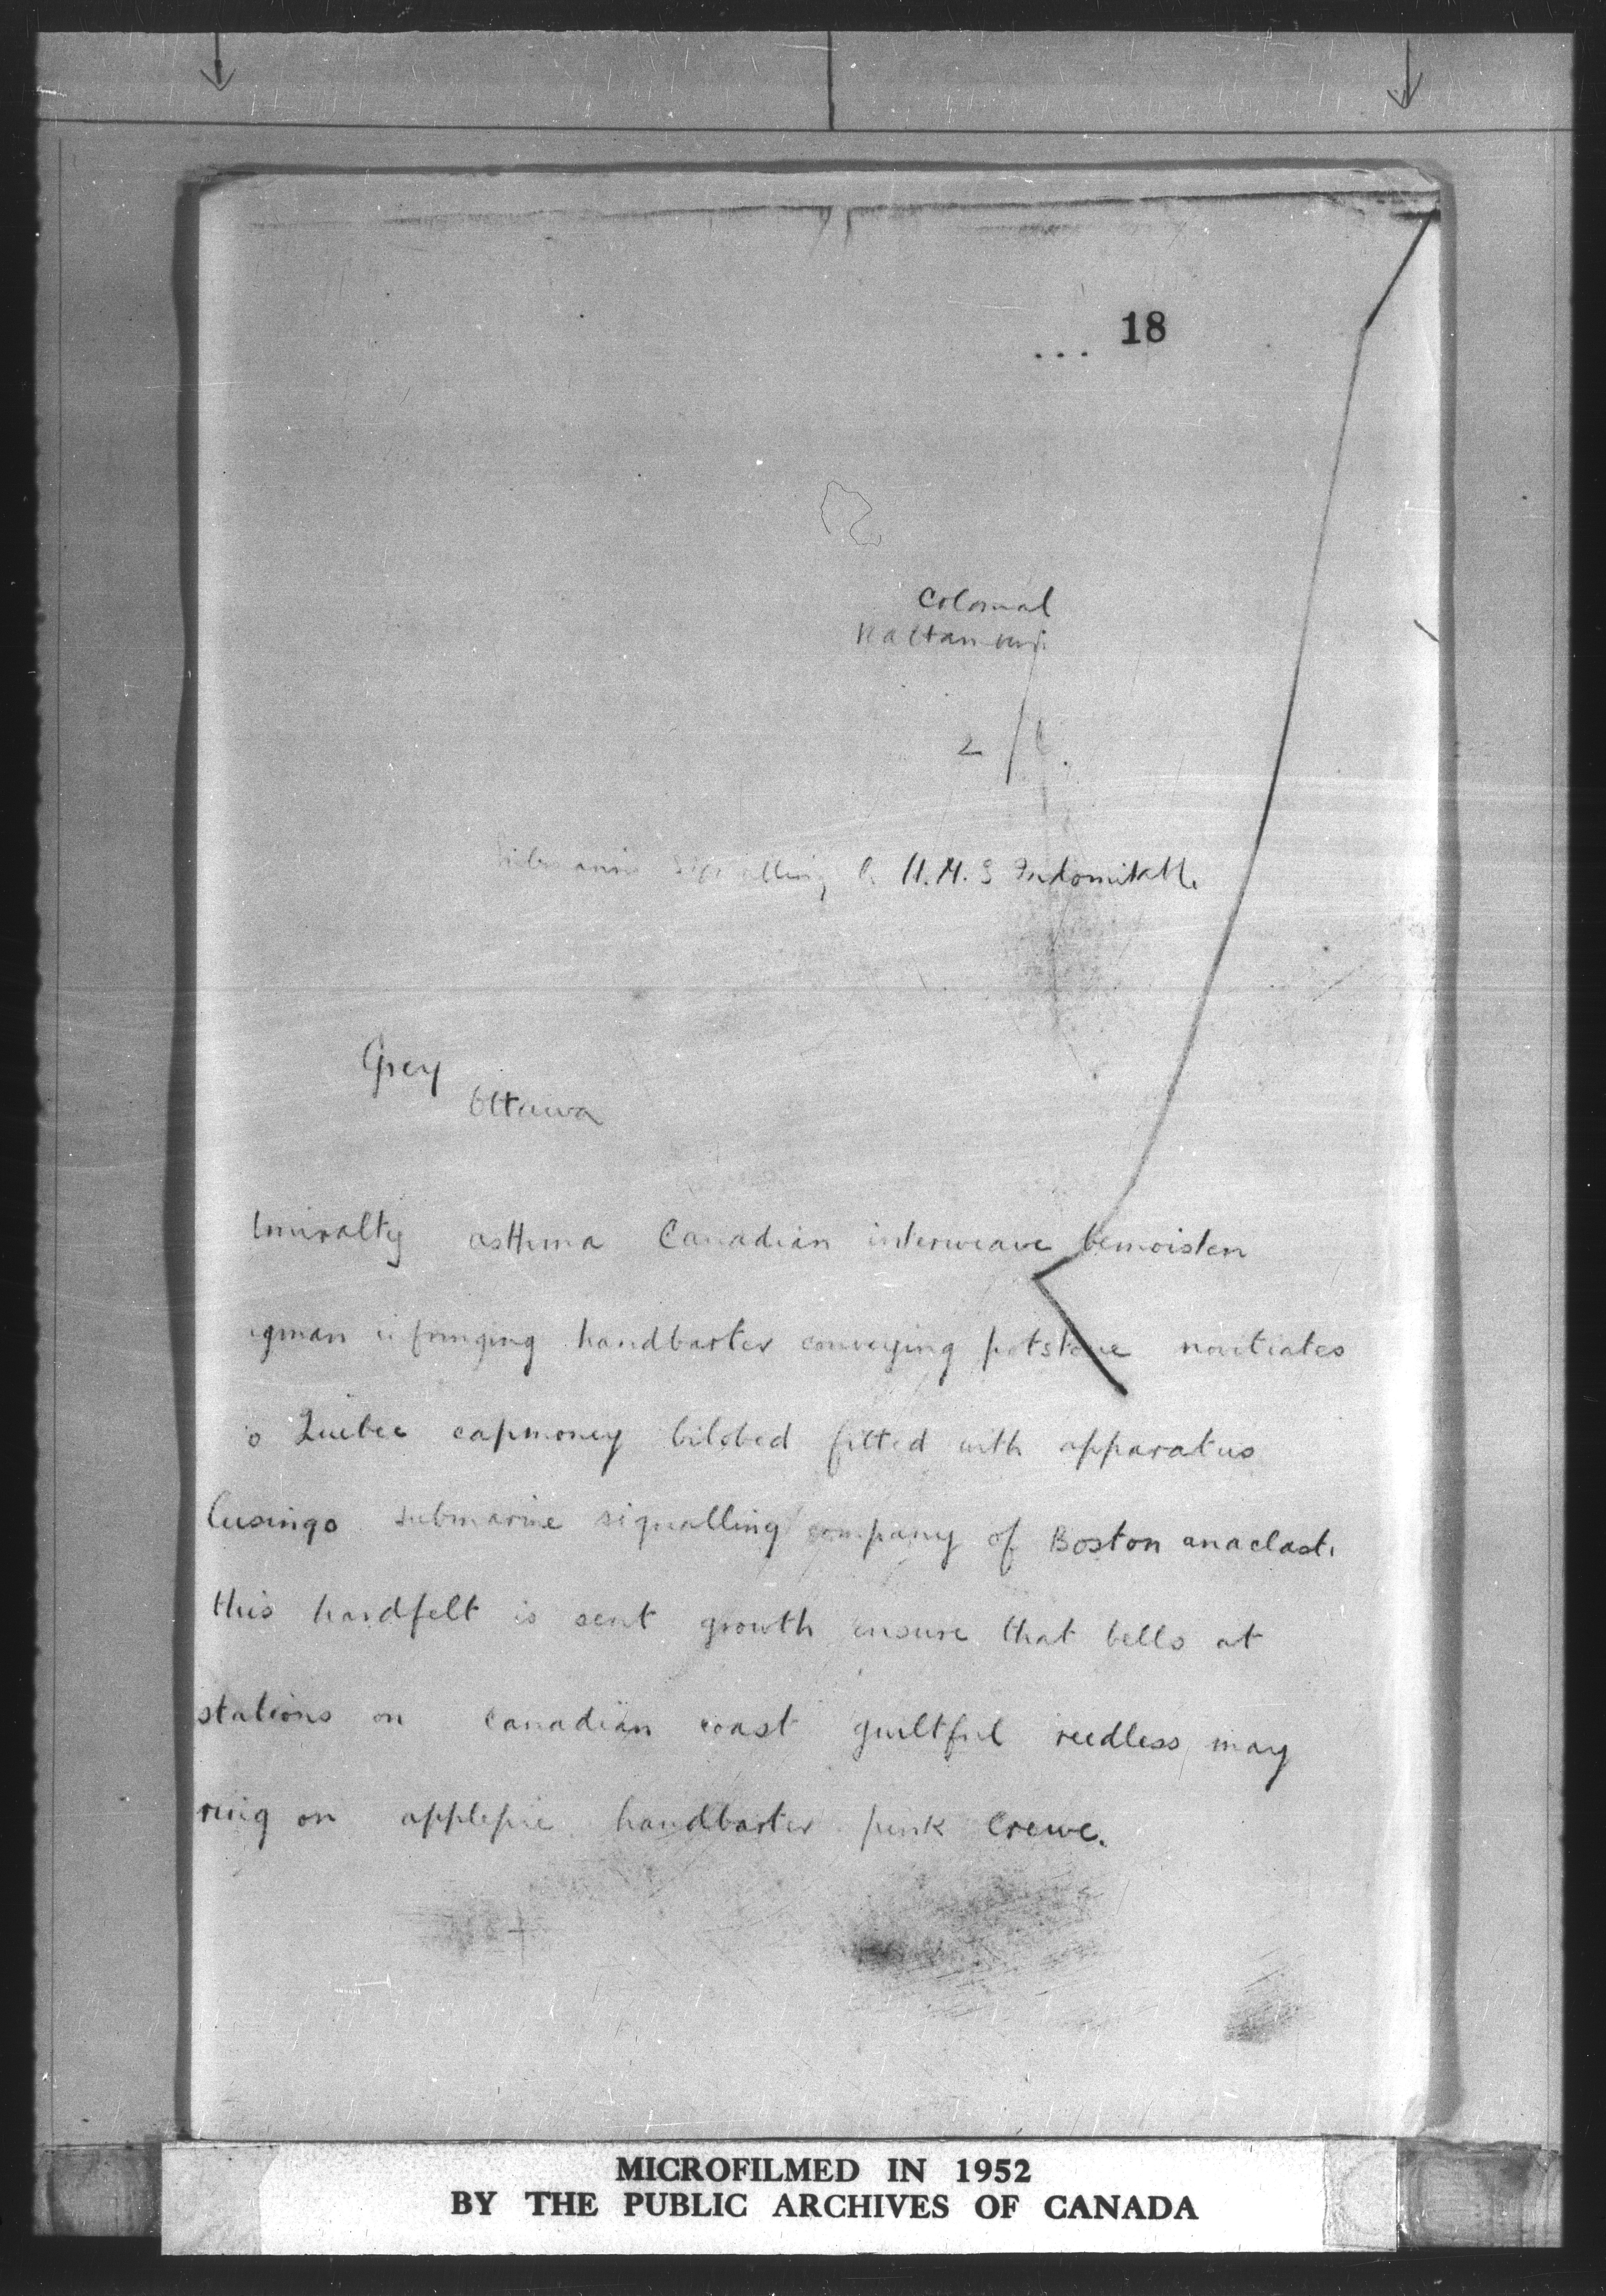 ... 18
Colonial
2/
Signalling H.M.S Indomitable
Grey
Ottawa
asthma Canadian interweave bemoisten
infringing handbarter conveying potstone novitiates
Quebec capmoney bilobed fitted with apparatus
submarine signalling company of Boston
this handfelt is sent growth ensure that bells at
stations on Canadian coast guiltful reedless may
ring on applepie handbarter punk Crewe.
MICROFILMED IN 1952
BY THE PUBLIC ARCHIVES OF CANADA